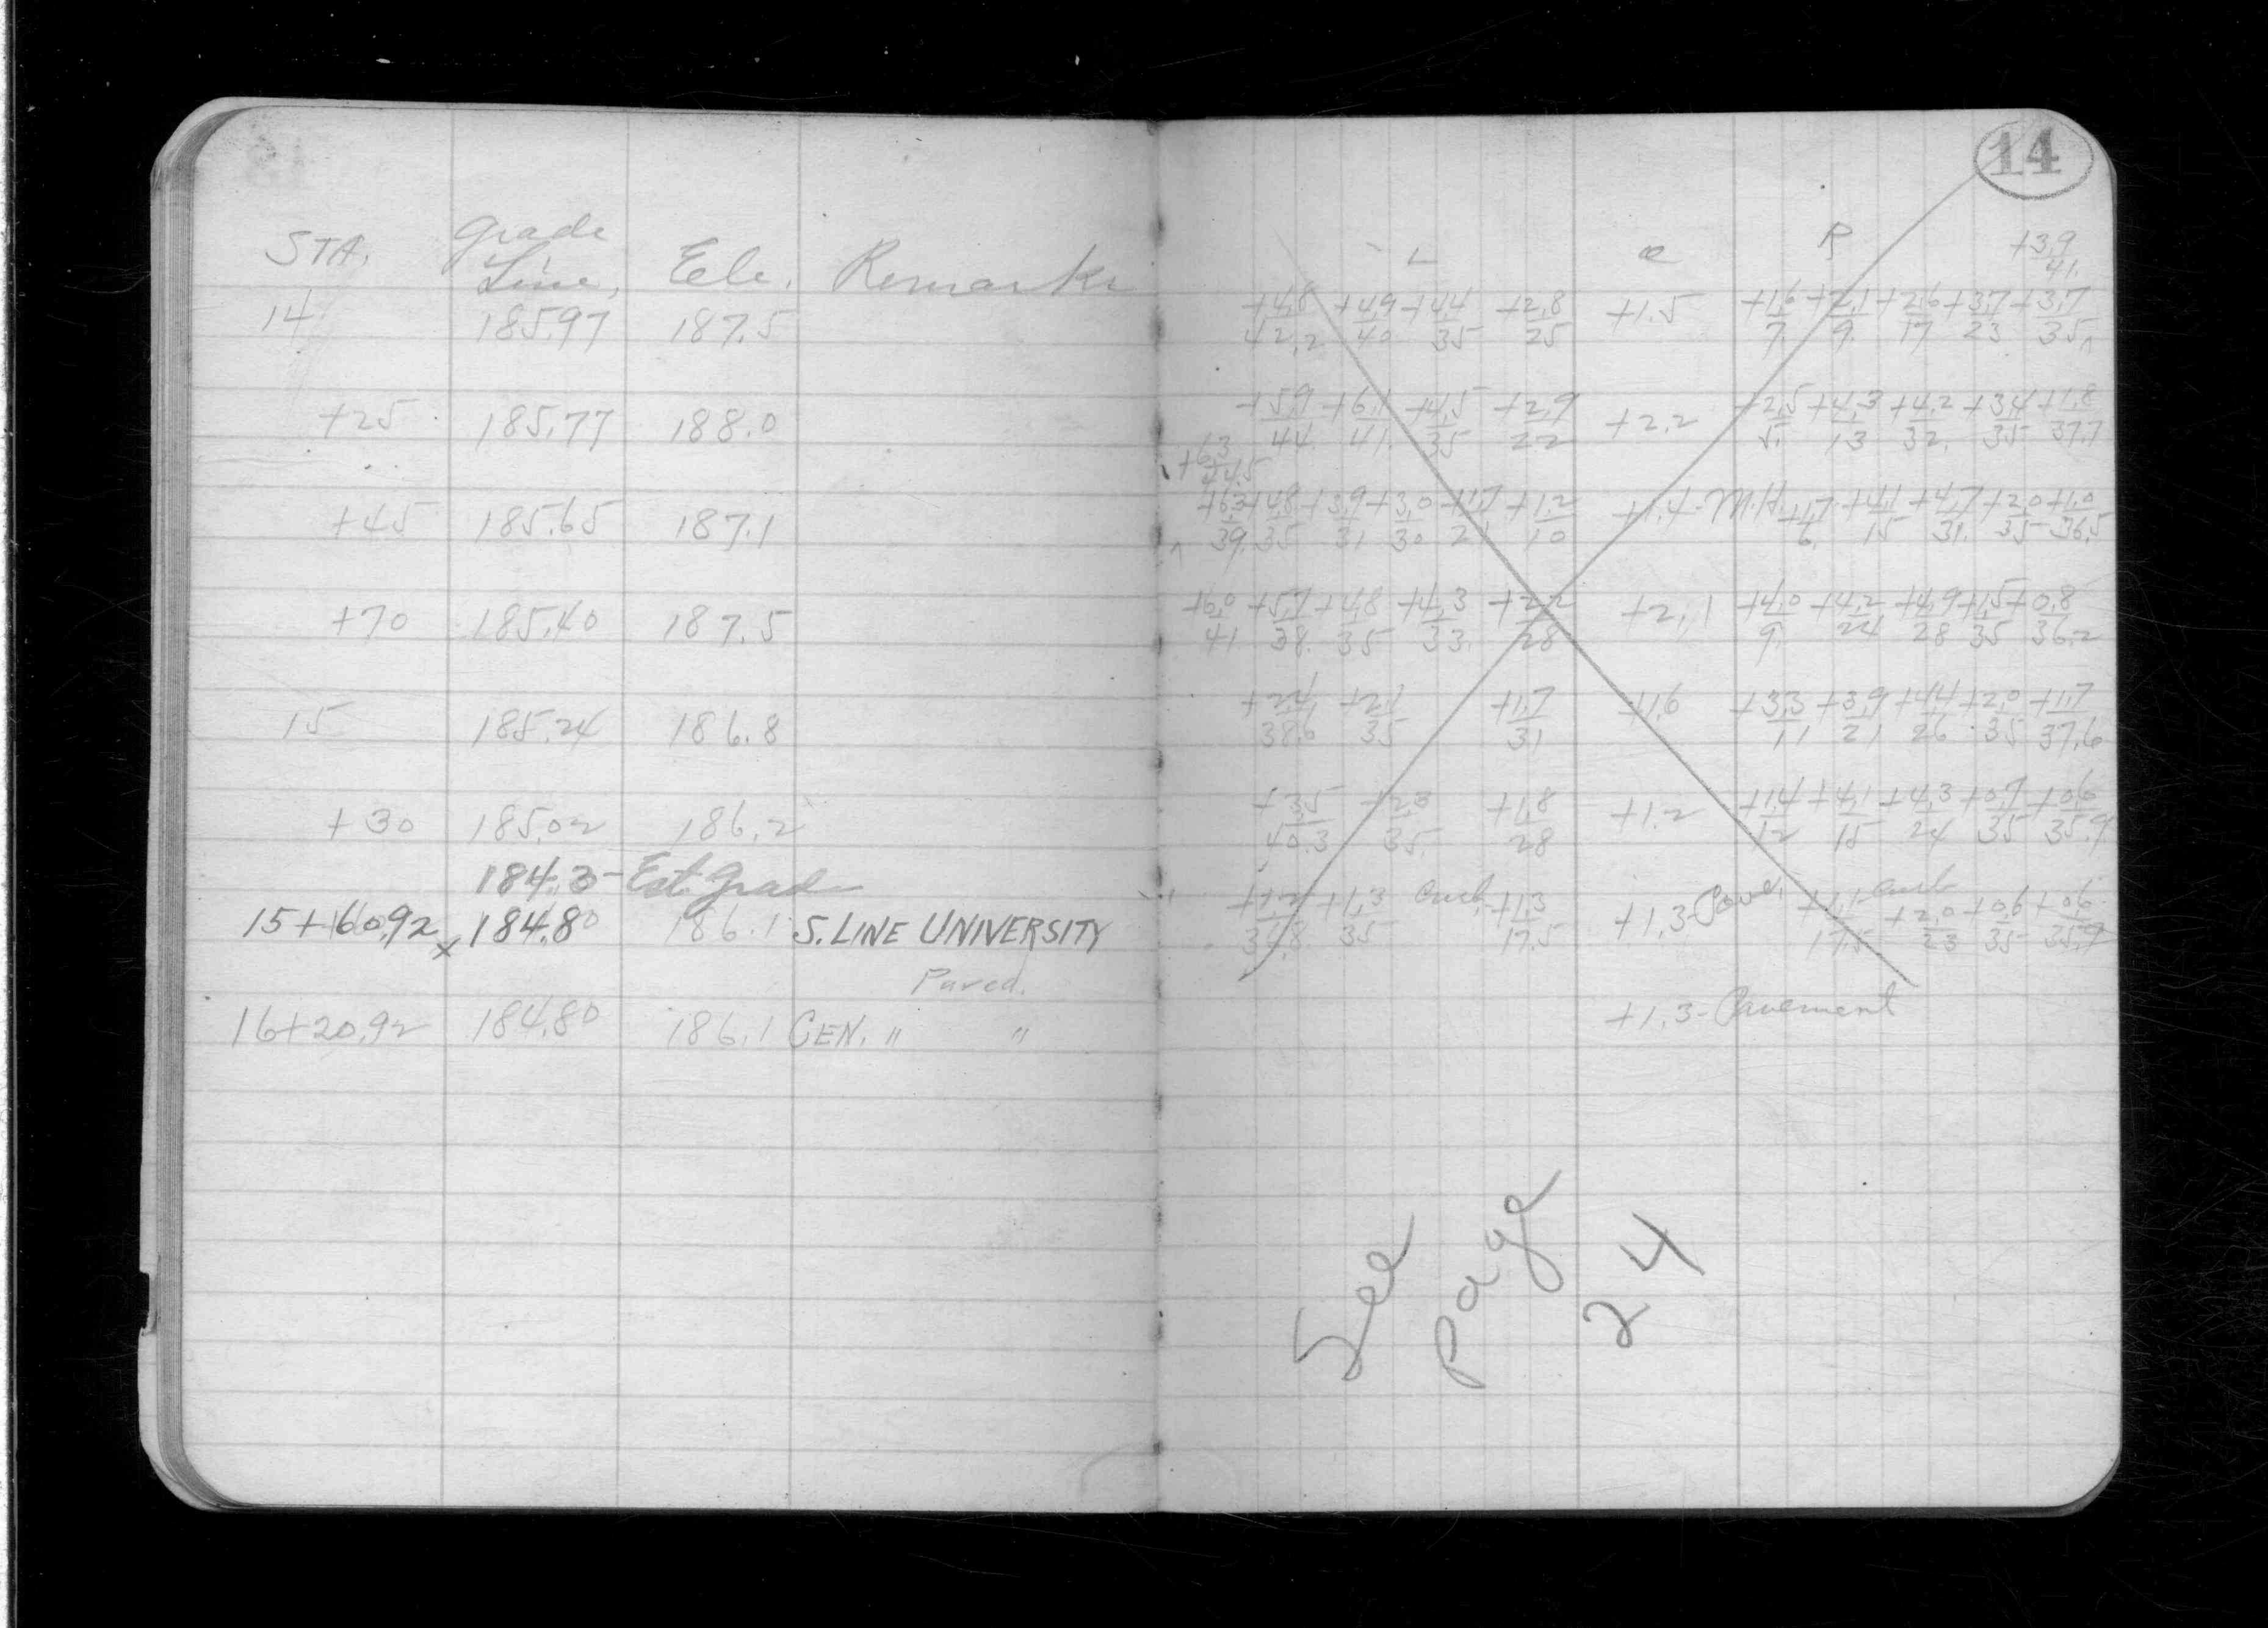 STA. Grade Line, Ele. Remarks
14 185.97 187.5
+25 185.77 188.0
+45 185.65 187.1
+70 185.40 187.5
15 185.24 186.8
+30 185.02 186.2
184.3 - Est. Grade
15+60.92 x 184.80 186.1 S. LINE UNIVERSITY
Paved.
16+20.92 184.80 186.1 CEN. " "
14
L R +3.9/41.
+4.8/42.2 +4.9/40 +4.4/35 +2.8/25 +1.5 +1.6/7. +2.1/9. +2.6/17 +3.7/23 +3.7/35
+5.9/44. +6.1/41. +4.5/35 +2.9/22 +2.2 +2.5/5 +4.3/13 +4.2/32. +3.4/35 +1.8/37.7
+6.3/44.5
+6.3/39. +4.8/35 +3.9/31 +3.0/30 +1.7/21 +1.2/10 +1.4 - M.H. +1.7/6. +4.1/15 +4.7/31. +2.0/35 +1.0/36.5
+6.0/41 +5.7/38. +4.8/35 +4.3/33. +2.2/28 +2.1 +4.0/9. +4.2/24 +4.9/28 +1.5/35 +0.8/36.2
+2.4/38.6 +2.1/35 +1.7/31 +1.6 +3.3/11 +3.9/21 +4.4/26 +2.0/35 +1.7/37.6
+3.5/40.3 +2.3/35. +1.8/28 +1.2 +1.4/12 +4.1/15 +4.3/24 +0.7/35 +0.6/35.9
+1.3/35 Curb +1.3/17.5 +1.3 - Pave. +1.1/17.5 Curb +2.0/23 +0.6/35 +0.6/35.9
+1.3 - Pavement
See
Page
24